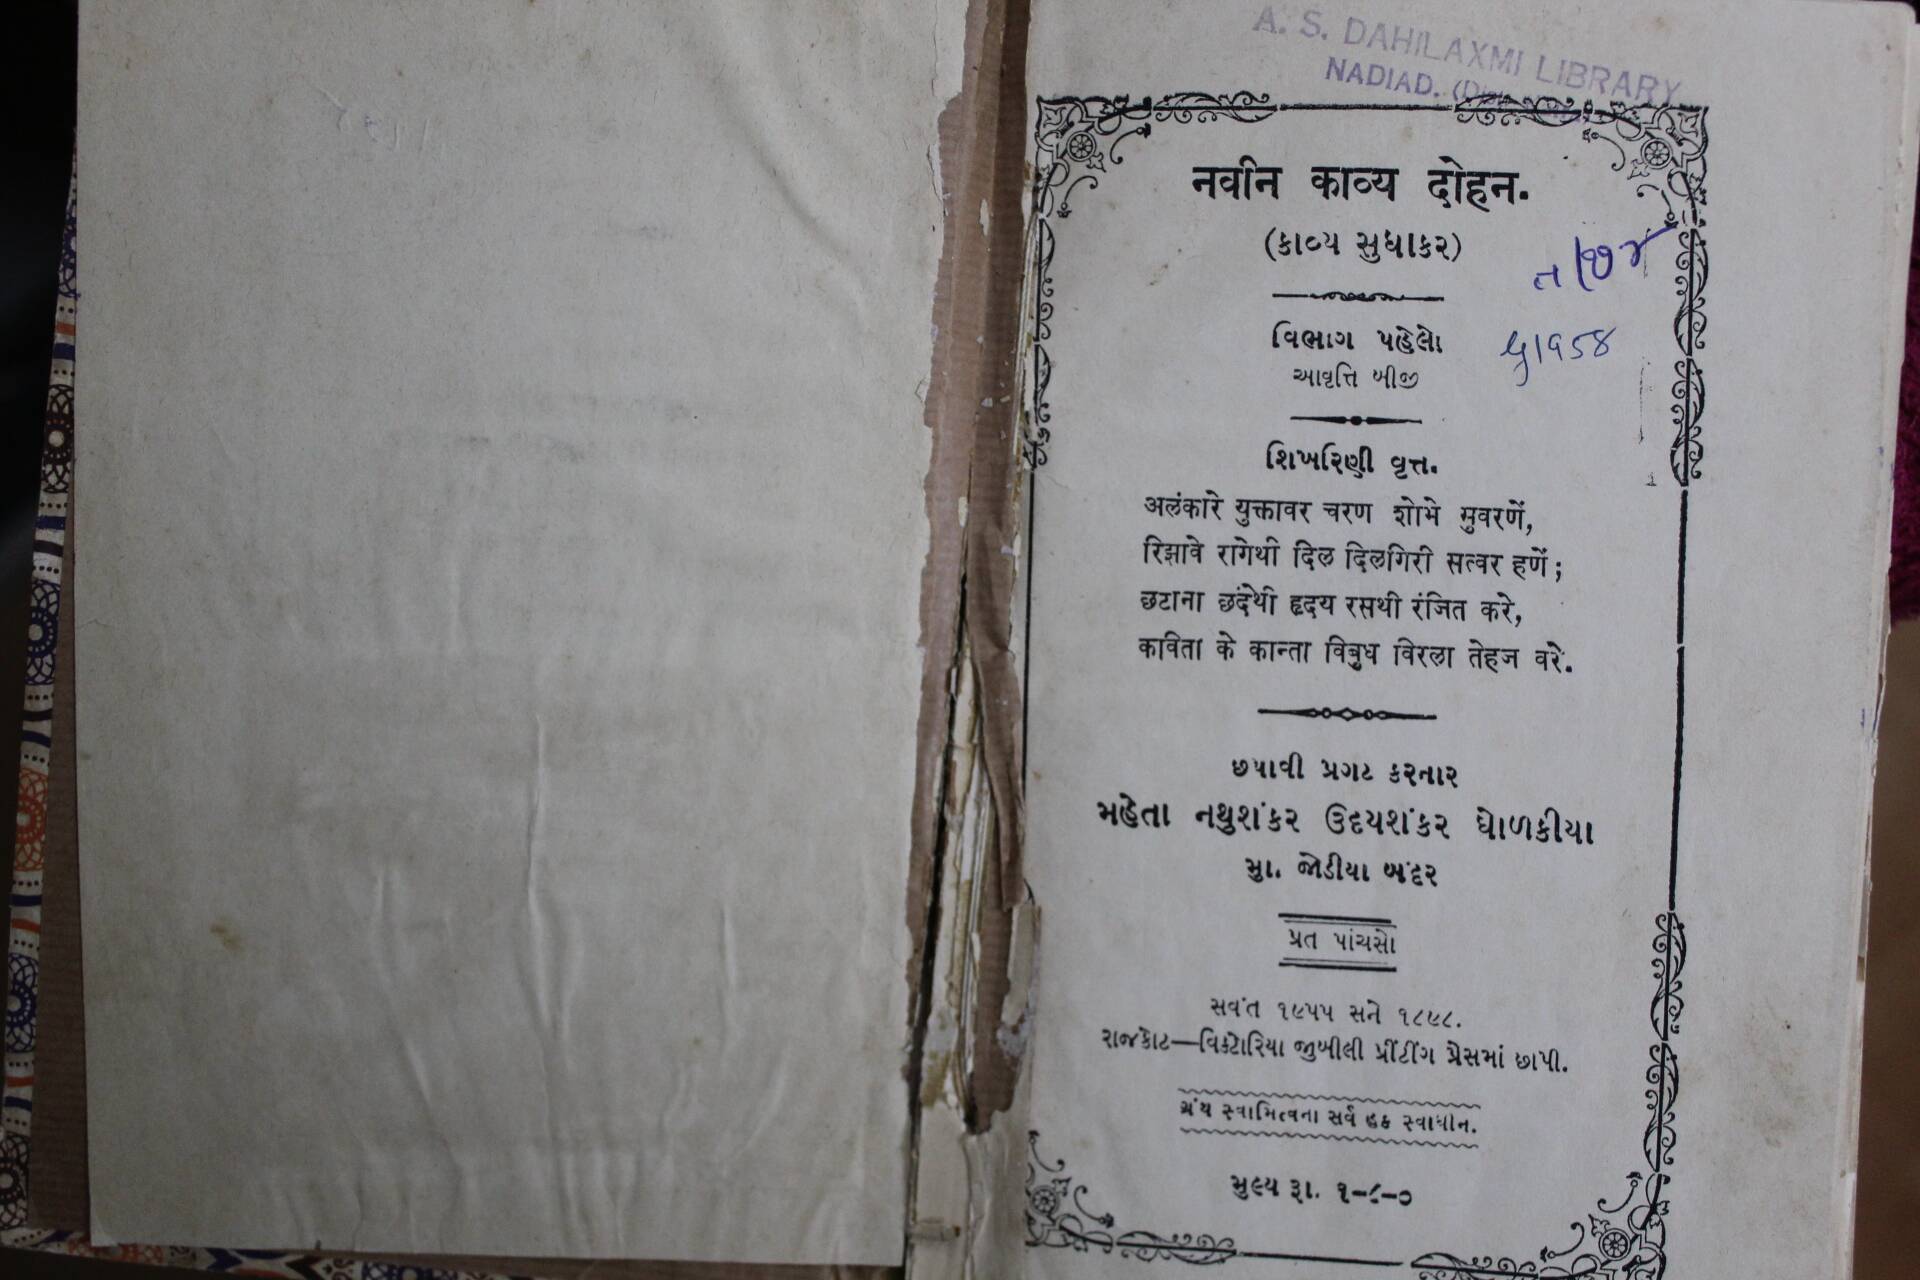 A. S. DAHILAXMI LIBRARY
NADIAD.
नवीन काव्य दोहन.
(કાવ્ય સુધાકર)
વિભાગ પહેલો
આવૃત્તિ બીજી
શિખરિણી વૃત્ત.
अलंकारे युक्तावर चरण शोभे सुवरणें,
रिझावे रागेथी दिल दिलगिरी सत्वर हणें;
छटाना छंदेथी हृदय रसथी रंजित करे,
कविता के कान्ता विबुध विरला तेहज वरे.
છપાવી પ્રગટ કરનાર
મહેતા નથુશંકર ઉદયશંકર ધોળકીયા
મુ. જોડીયા બંદર
પ્રત પાંચસો
સવંત ૧૯૫૫ સને ૧૮૯૮.
રાજકોટ—વિક્ટોરિયા જુબીલી પ્રીંટીંગ પ્રેસમાં છાપી.
ગ્રંથ સ્વામિત્વના સર્વ હક સ્વાધીન.
મુલ્ય રૂા. ૧-૮-૦